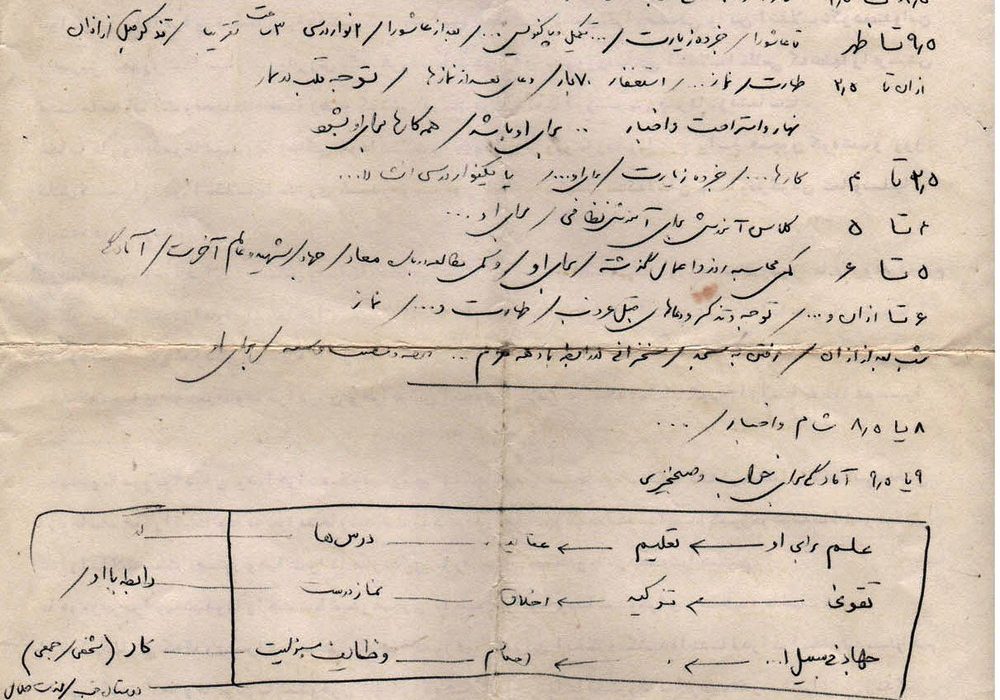 ۹٫۵ تا ظهر تا عاشورا / خرده زیارت / ... / بعد از عاشورا / ۲ نوار درسی ۳ ساعت تقریبا / قبل از اذان
اذان تا ۲٫۵ طهارت / نماز ... / استغفار ۷۰ بار / دعای بعد از نمازها / توجه قلب بدنماز
نهار و استراحت و اخبار ... برای او باشد / همه کارها برای او بشود
۲٫۵ تا ۴ کارها ... / خرده زیارت / برای او ... / یا یک نوار درسی انشاءا...
۴ تا ۵ کلاس آموزش برای آموزش نظامی / برای او ...
۵ تا ۶ کمی محاسبه روز و اعمال گذشته / برای او / و کمی مطالعه درباره معاد / جهاد / شهید و عالم آخرت / آمادگی
۶ تا اذان و ... / توجه و تذکر و دعاهای قبل غروب / طهارت و ... / نماز
شب بعد از اذان / رفتن به مسجد / سخنرانی در رابطه با دهه محرم ... / برای او
۸ یا ۸٫۵ شام و اخبار / ...
۹ یا ۹٫۵ آمادگی برای خواب و صبحخیزی
علم برای او ← تعلیم ← عقاید درس‌ها
تقوی ← تزکیه ← اخلاق نماز درست رابطه با او /
جهاد فی سبیل ا... ← ← احکام وظایف مسئولیت کار (شخصی / جمعی)
دوستان خوب /